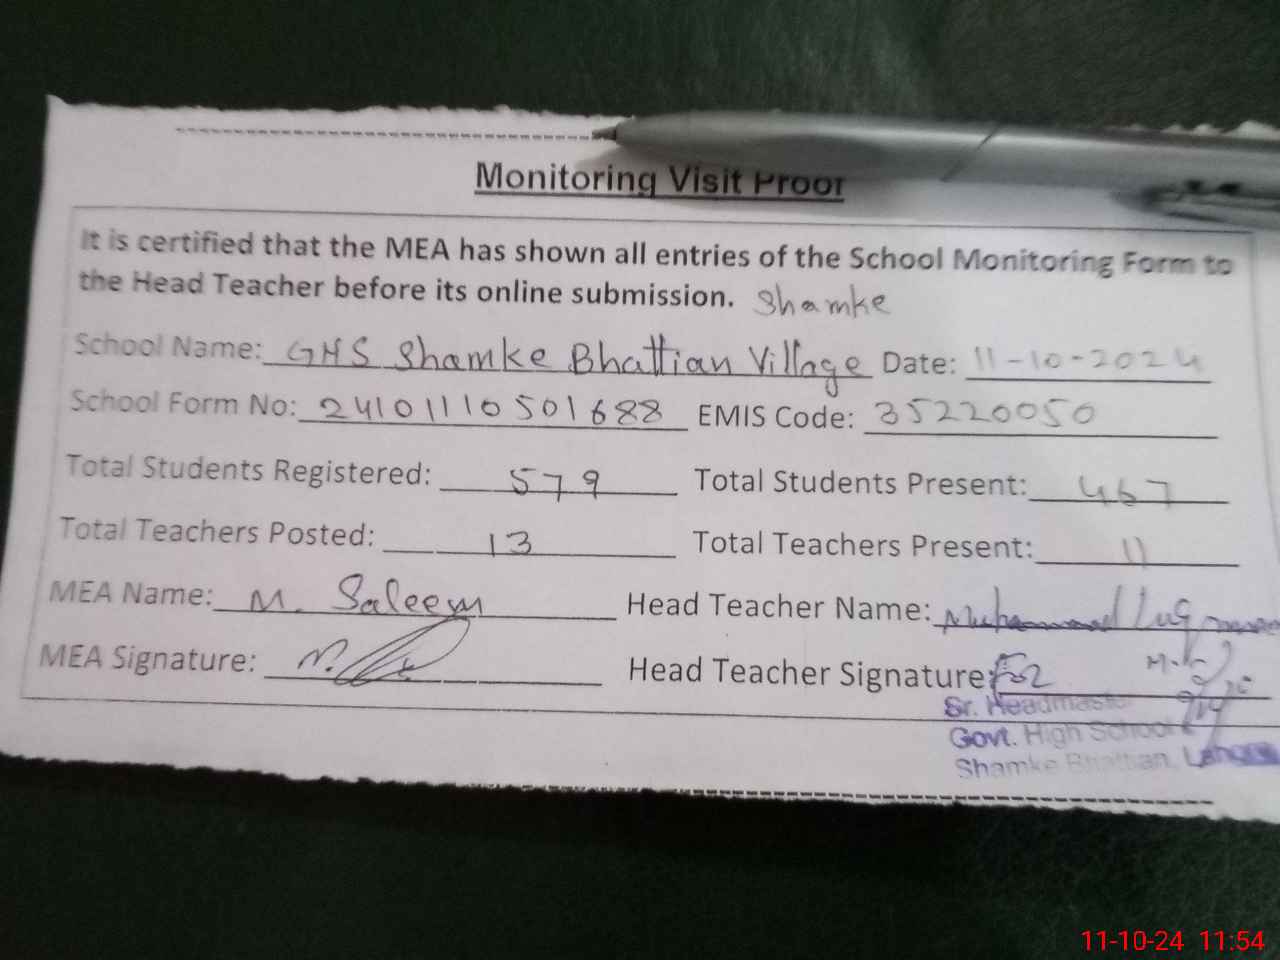 Monitoring Visit Proof
It is certified that the MEA has shown all entries of the School Monitoring Form to
the Head Teacher before its online submission. Shamke
School Name: GHS Shamke Bhattian Village Date: 11-10-2024
School Form No: 24101110501688 EMIS Code: 35220050
Total Students Registered: 579 Total Students Present: 467
Total Teachers Posted: 13 Total Teachers Present: 11
MEA Name: M. Saleem Head Teacher Name: Muhammad
MEA Signature: Head Teacher Signature:
Sr. Headmaster
Govt. High School
Shamke Bhattian, Lahore
11-10-24 11:54